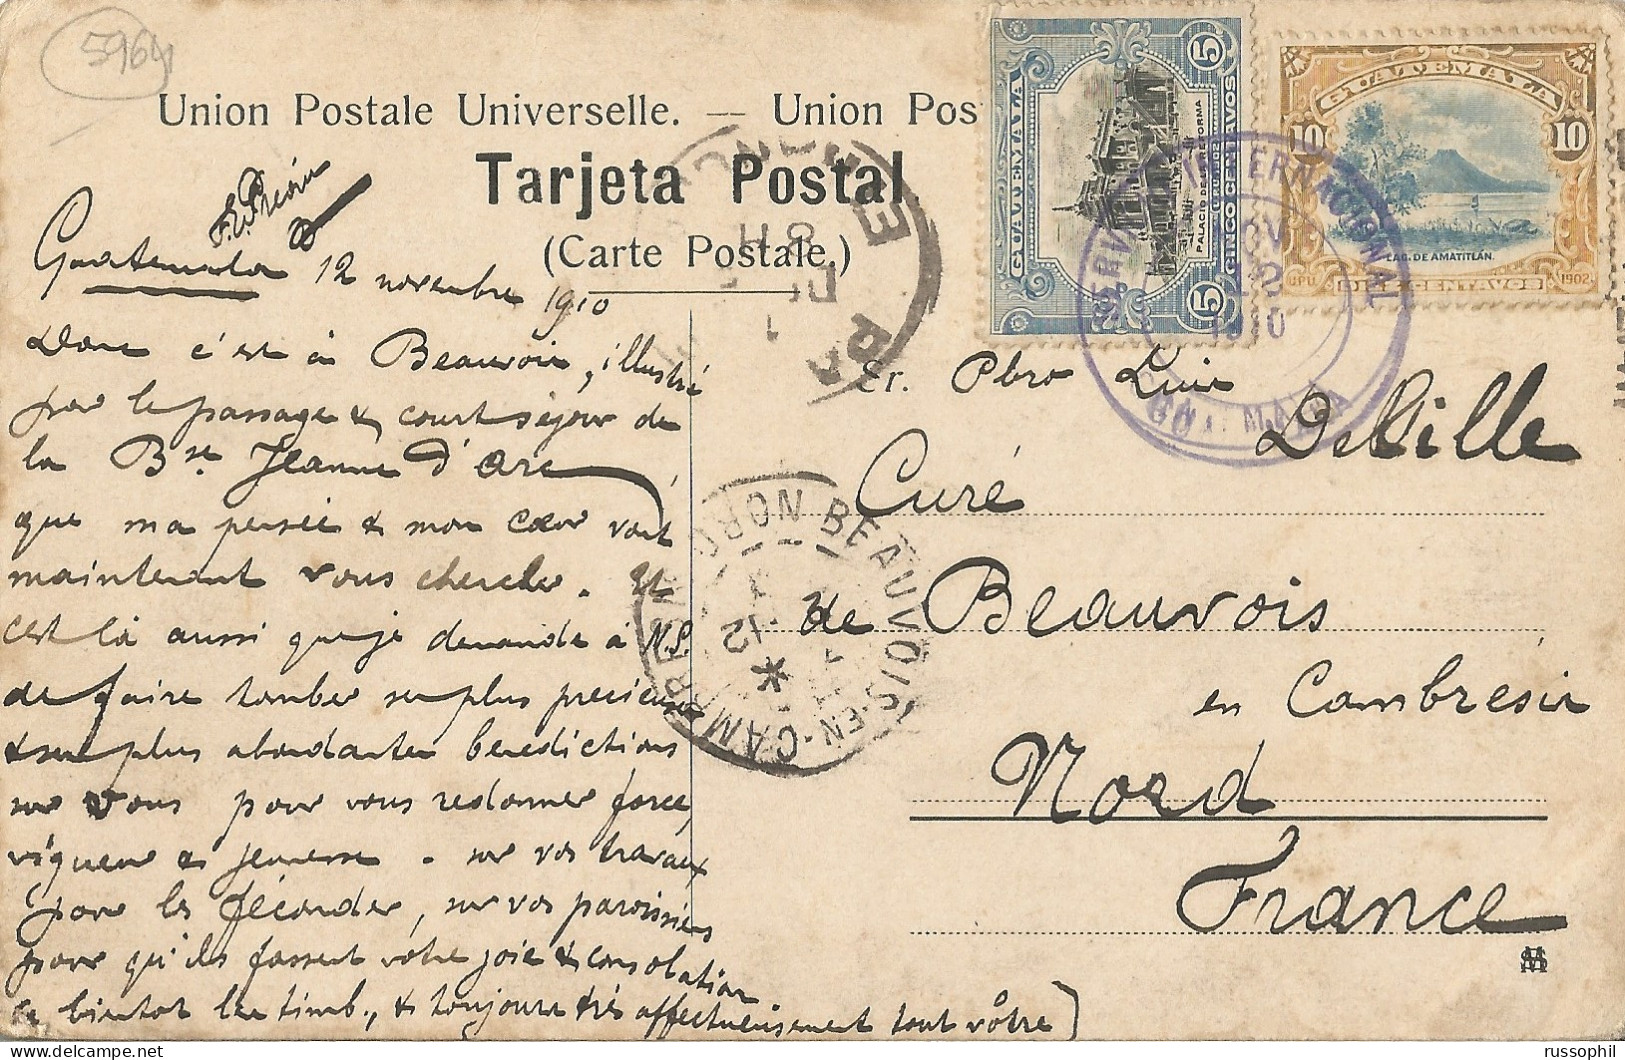 5964
Union Postale Universelle. — Union Pos
Tarjeta Postal
(Carte Postale.)
GUATEMALA
5
5
PALACIO DE LA REFORMA
CINCO CENTAVOS
GUATEMALA
10
10
LAG. DE AMATITLÁN.
DIEZ CENTAVOS
1902
SERV INTERNACIONAL
NOV
12
1910
GUATEMALA
Guatemala 12 novembre 1910
Donc c'est à Beauvois, illustré
par le passage & court séjour de
la Bse Jeanne d'Arc
que ma pensée & mon cœur vont
maintenant vous chercher. Et
c'est là aussi que je demande à N.S.
de faire tomber ses plus precieuses
& ses plus abondantes benedictions
sur vous pour vous redonner force,
vigueur & jeunesse - sur vos travaux
pour les féconder, sur vos paroissiens
pour qu'ils fassent votre joie & consolation.
à bientot les timb., & toujours très affectueusement tout vôtre
Sr. Pbro Luis
Delille
Curé
de Beauvois
en Cambresis
Nord
France
BEAUVOIS-EN-CAMBRESIS
NORD
12